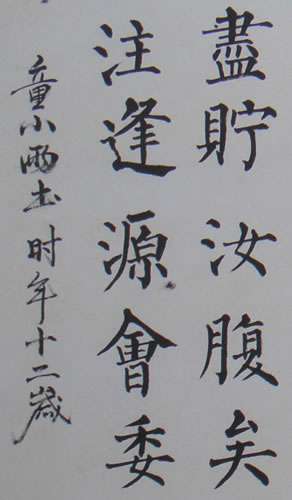 盡貯汝腹矣
注逢源會委
童小雨书 时年十二歲